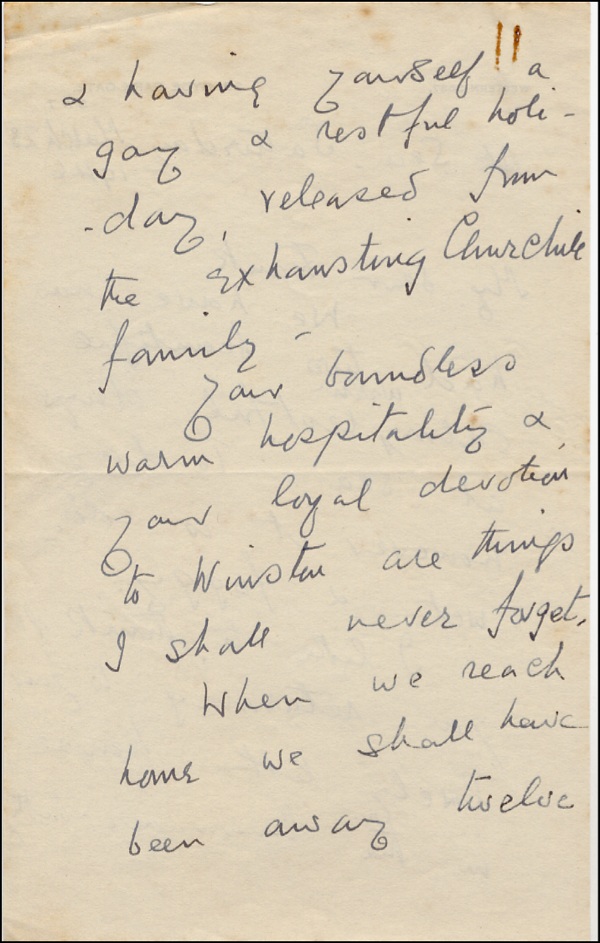 & having yourself a
gay & restful holi-
-day, released from
the exhausting Churchill
family -
Your boundless
warm hospitality &
your loyal devotion
to Winston are things
I shall never forget.
When we reach
home we shall have
been away twelve